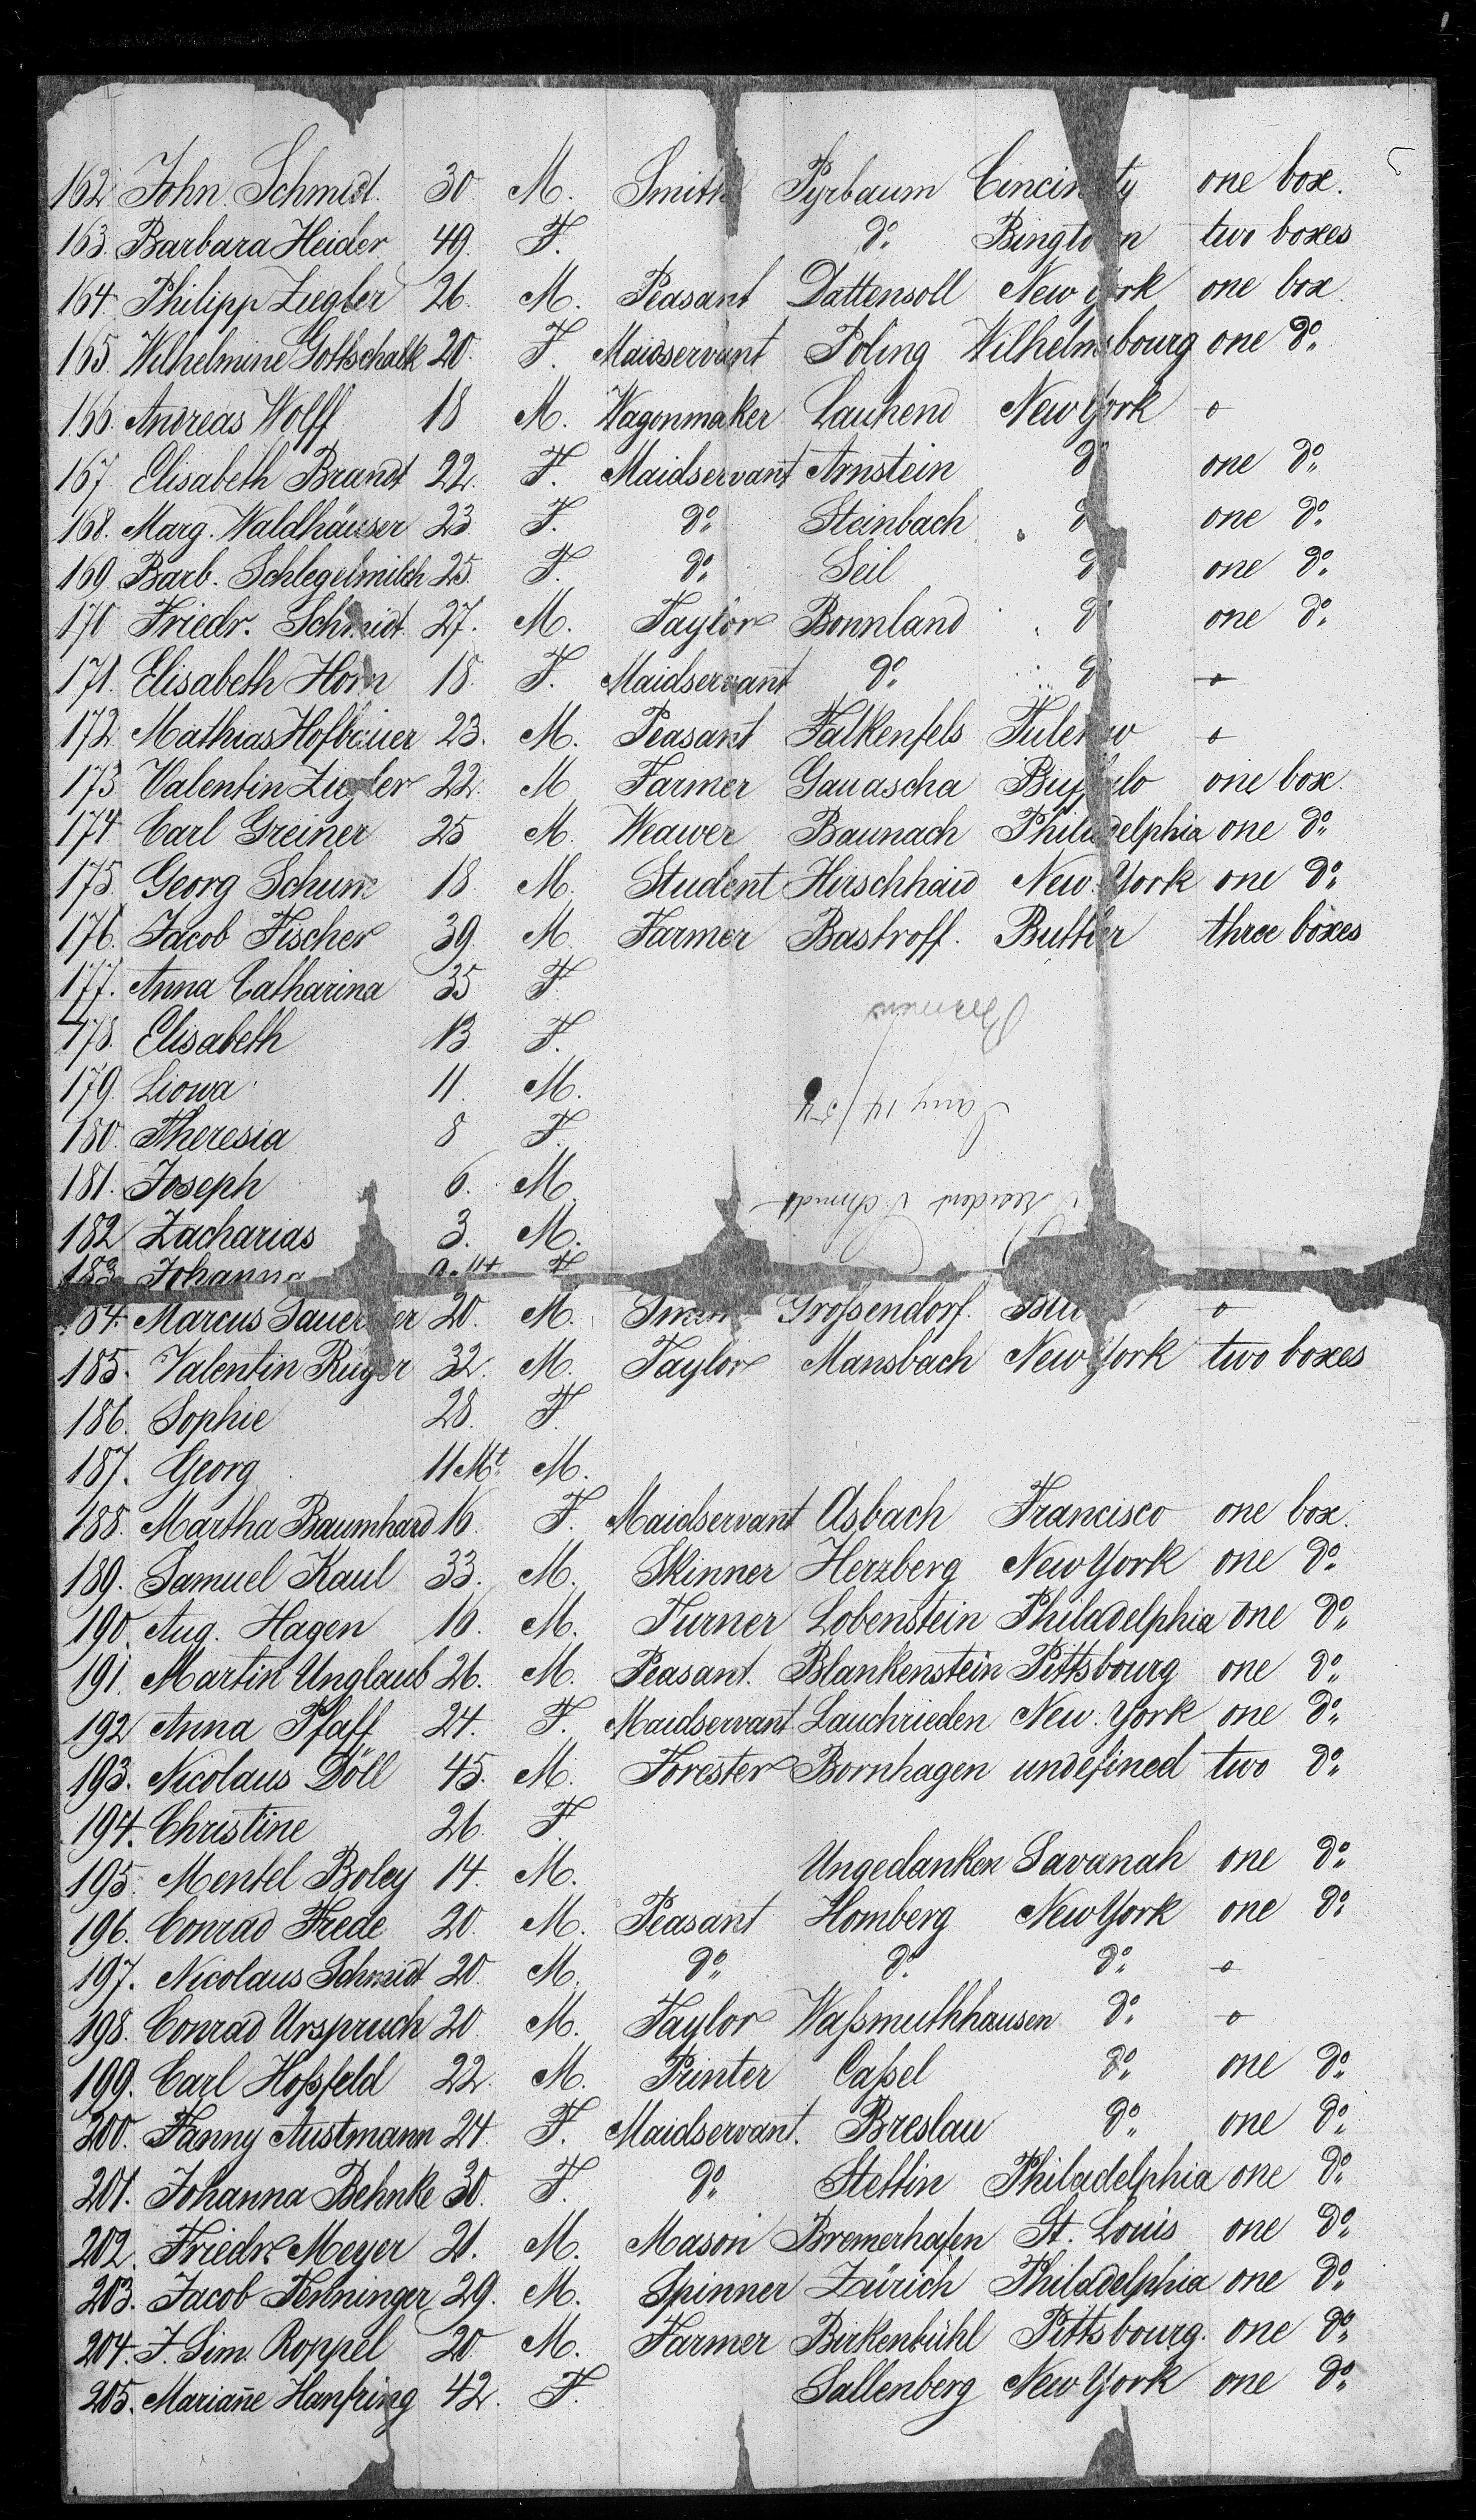 162 John Schmidt. 30 M. Smith Pyrbaum Cincinaty one box.
163. Barbara Heider 49. F. do Bingtown two boxes
164. Philipp Ziegler 26. M. Peasant Dattensoll New York one box
165. Wilhelmine Gottschalk 20. F. Maidservant Poling Wilhelmsbourg one do
166. Andreas Wolff 18 M. Wagonmaker Lauhend New York o
167. Elisabeth Brandt 22. F. Maidservant Arnstein do one do
168. Marg. Waldhäuser 23 F. do Steinbach do one do
169. Barb. Schlegelmilch 25. F. do Seil do one do
170 Friedr. Schmidt 27. M. Taylor Bonnland do one do
171. Elisabeth Horn 18. F. Maidservant do do o
172. Mathias Hofbauer 23. M. Peasant Falkenfels o
173 Valentin Ziegler 22. M Farmer Gauascha Buffelo one box.
174 Carl Greiner 25 M. Weawer Baunach Philadelphia one do
175. Georg Schum 18 M. Student Hirschhaid New York one do
176. Jacob Fischer 39. M. Farmer Bastroff. Buttler three boxes
177. Anna Catharina 35 F
178. Elisabeth 13 F.
179. Liowa 11. M.
180. Theresia 8 F.
181. Joseph 6. M.
182 Zacharias 3. M.
183 Johanna F
184. Marcus 20. M. Großendorf. o
185. Valentin Rüger 32. M. Taylor Mansbach New York two boxes
186. Sophie 28. F
187. Georg 11 Mt. M.
188. Martha Baumhard 16. F. Maidservant Asbach Francisco one box.
189. Samuel Kaul 33. M. Skinner Herzberg New York one do
190. Aug. Hagen 16. M. Turner Lobenstein Philadelphia one do
191. Martin Unglaub 26. M. Peasant. Blankenstein Pittsbourg one do
192 Anna Pfaff 24. F. Maidservant Lauchrieden New York one do
193. Nicolaus Döll 45. M. Forester Bornhagen undefined two do
194. Christine 26. F
195. Mentel Boley 14. M. Ungedanken Savanah one do
196. Conrad Frede 20. M. Peasant Homberg New York one do
197. Nicolaus Schmidt 20. M. do do do o
198. Conrad Urspruch 20. M. Taylor Waßmuthhausen do o
199. Carl Hoßfeld 22. M. Printer Caßel do one do
200. Fanny Austmann 24 F. Maidservant. Breslau do one do
201. Johanna Behnke 30. F. do Stettin Philadelphia one do
202. Friedr. Meyer 21. M. Mason Bremerhafen St. Louis one do
203. Jacob Fenninger 29. M. Spinner Zürich Philadelphia one do
204. J. Sim. Roppel 20 M. Farmer Birkenbühl Pittsbourg. one do
205. Mariañe Hanfring 42. F. Sallenberg New York one do
President Schmidt
Jany 14/54
Bremen